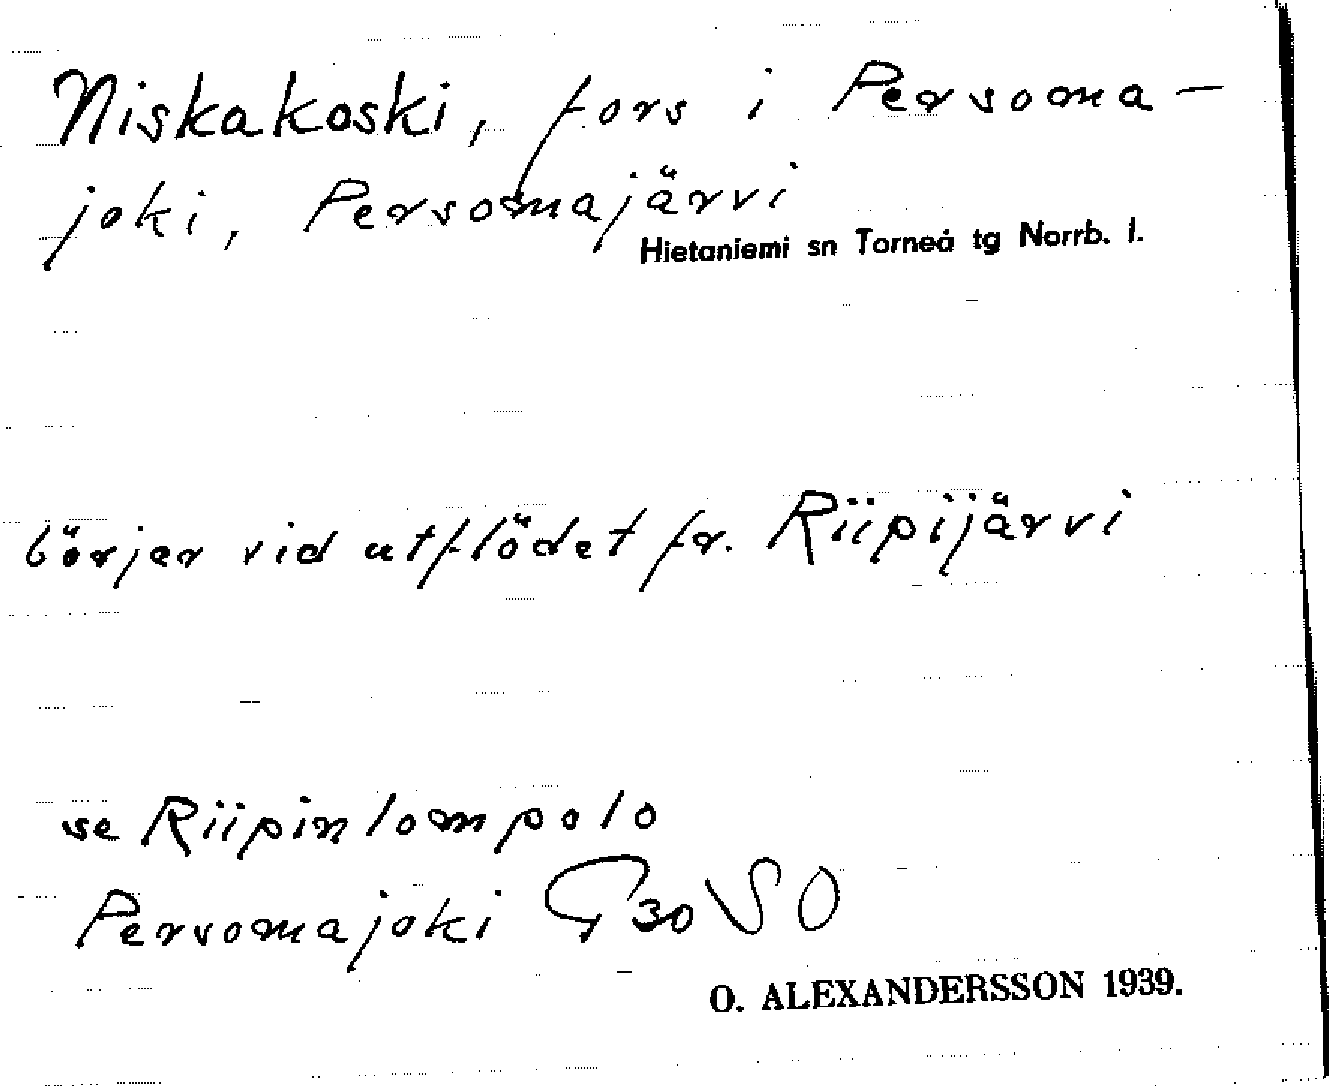 Niskakoski, fors i Persoma-
joki, Persomajärvi
Hietaniemi sn Torneå tg Norrb. l.
börjer vid utflödet fr. Riipijärvi
se Riipinlompolo
Persomajoki G30 SO
O. ALEXANDERSSON 1939.